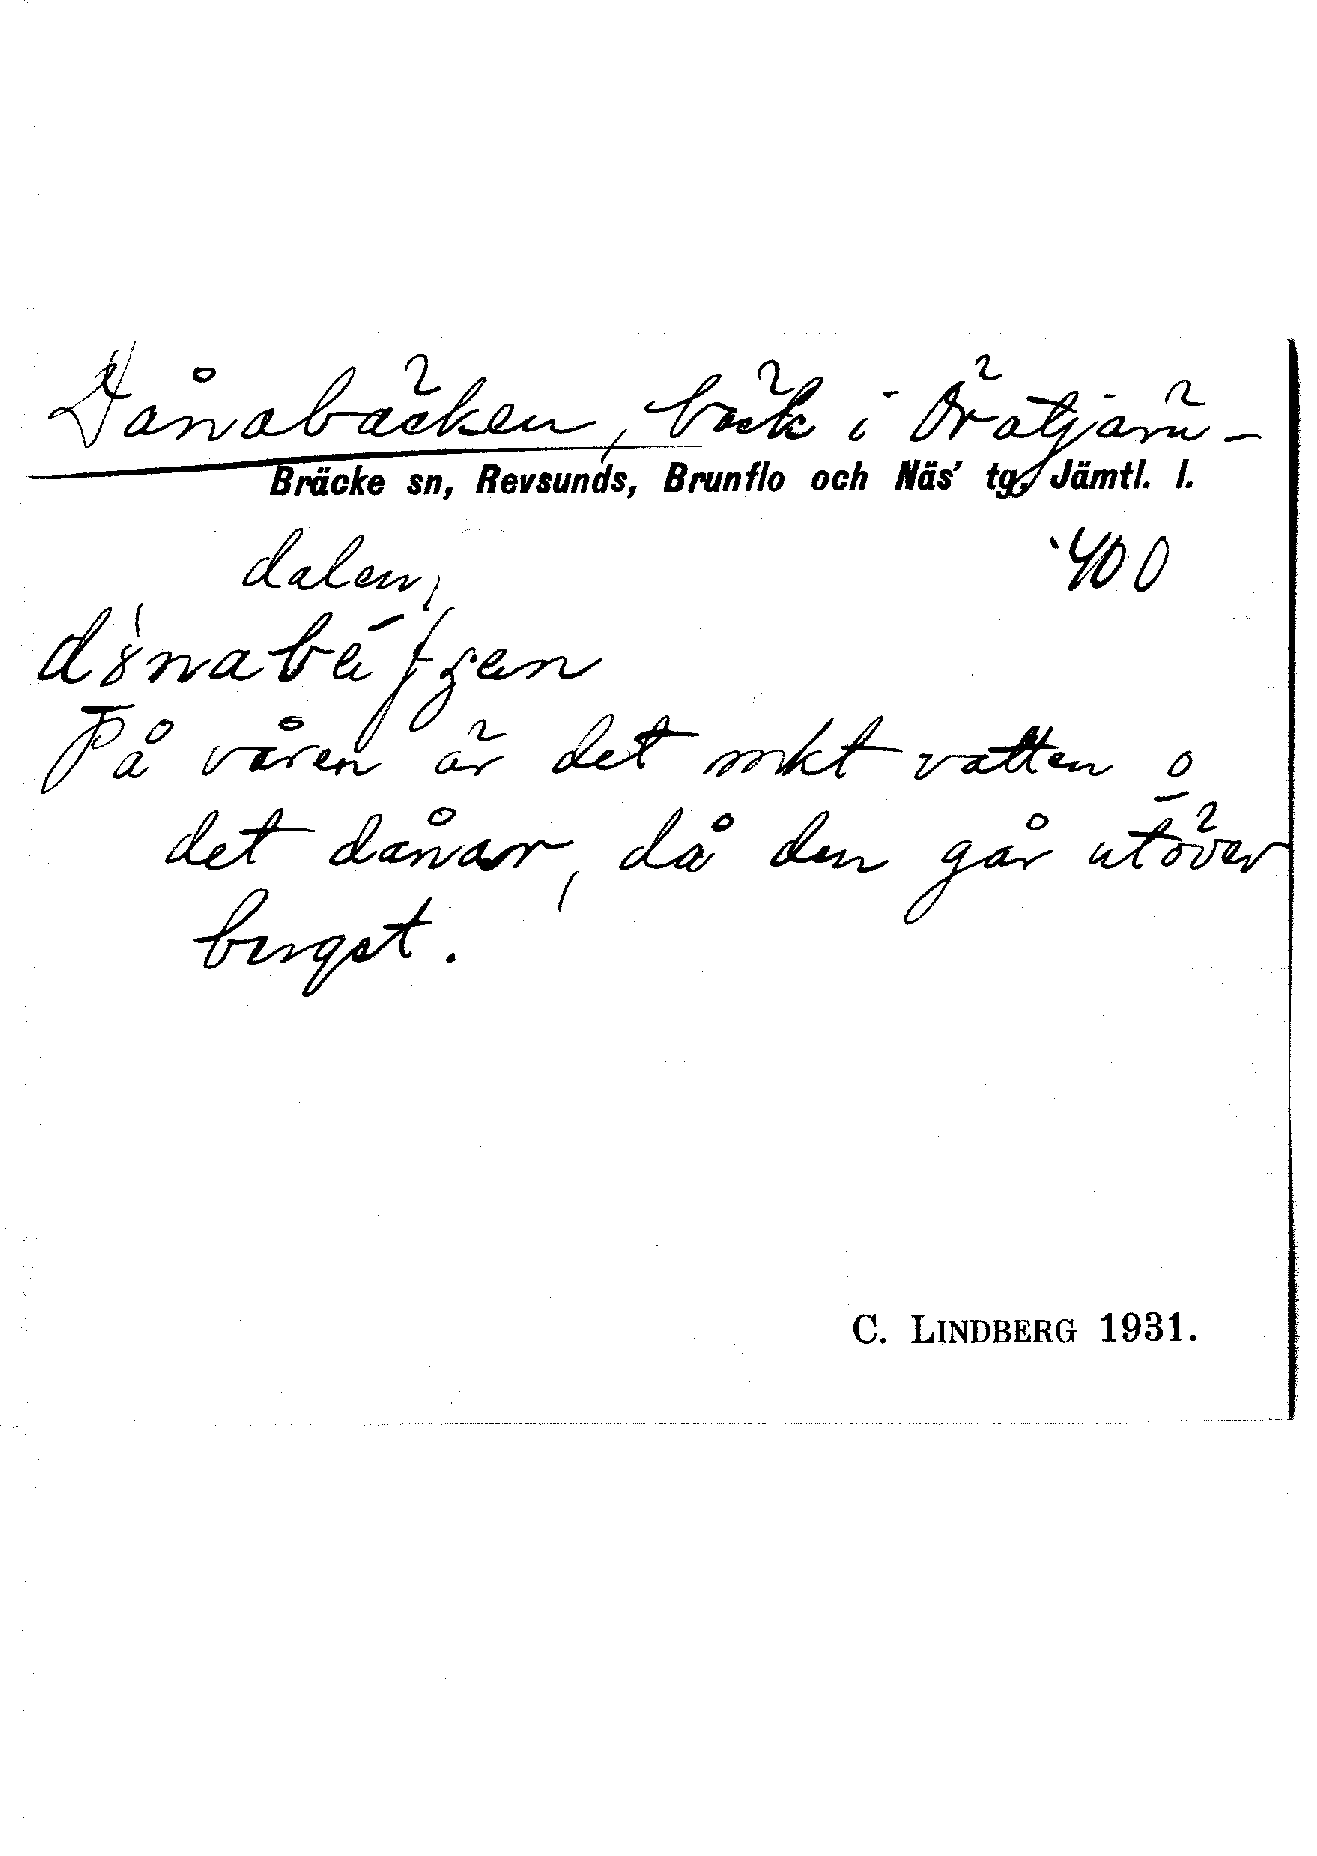 Dånabäcken, bäck i Örätjärn-
Bräcke sn, Revsunds, Brunflo och Näs' tg, Jämtl. l.
dalen, 400
På våren är det mkt vatten o
det dånar, då den går utöver
berget.
C. LINDBERG 1931.